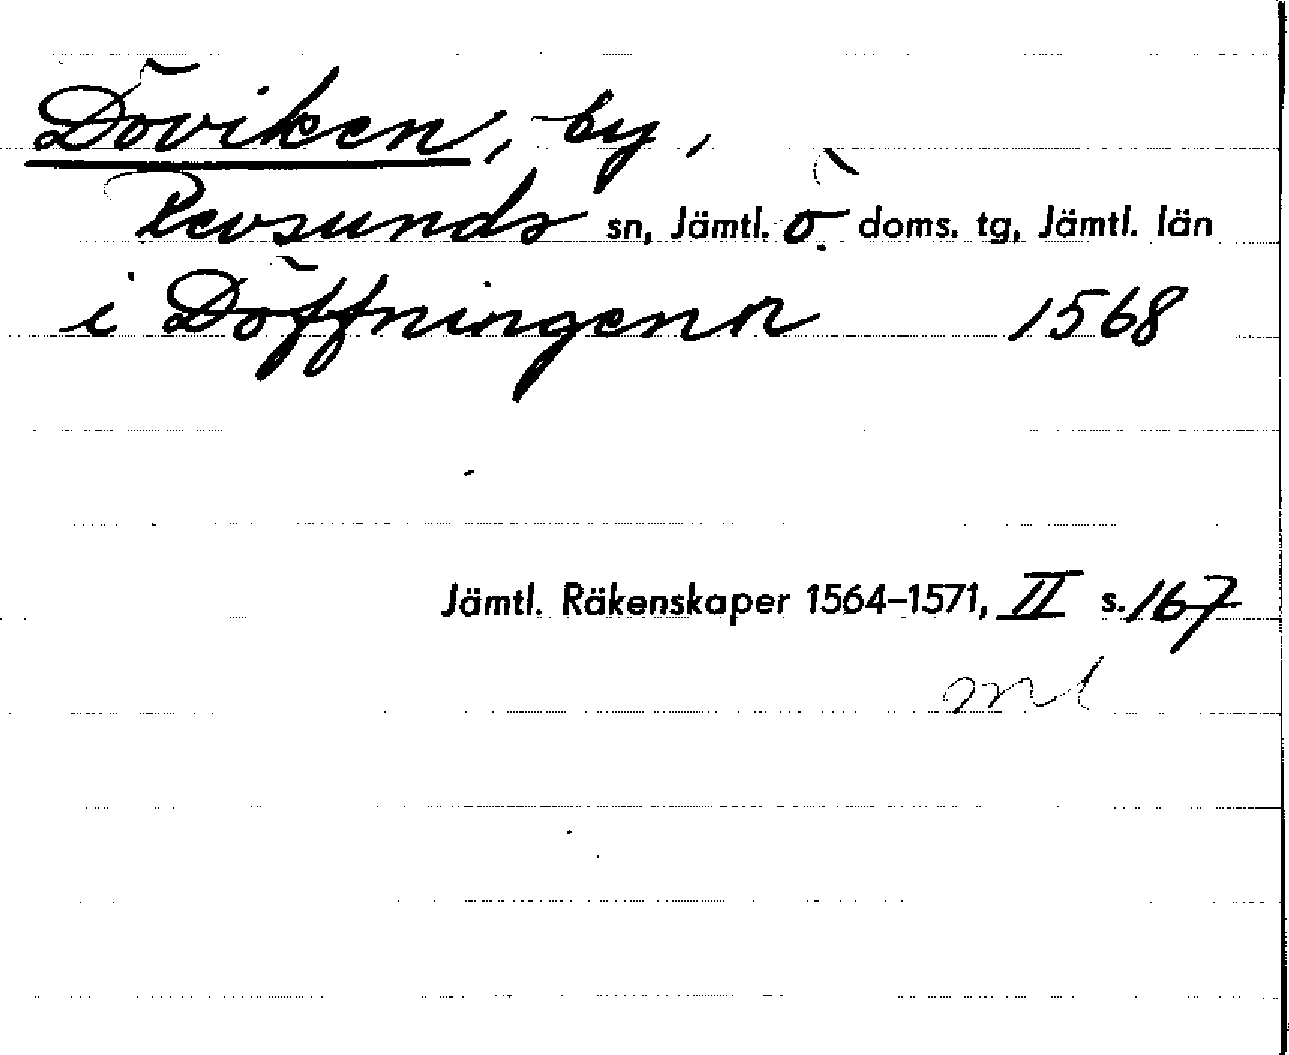 Döviken, by,
Revsunds sn, Jämtl. ö. doms. tg, Jämtl. län
i Döffningenn 1568
Jämtl. Räkenskaper 1564–1571, II s. 167